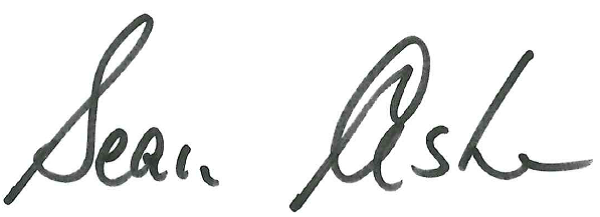 Sean Ashe